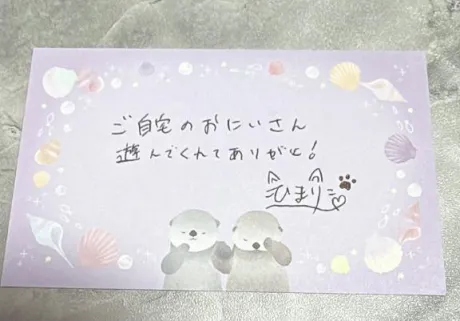 ご自宅のおにいさん
遊んでくれてありがと!
ひまり